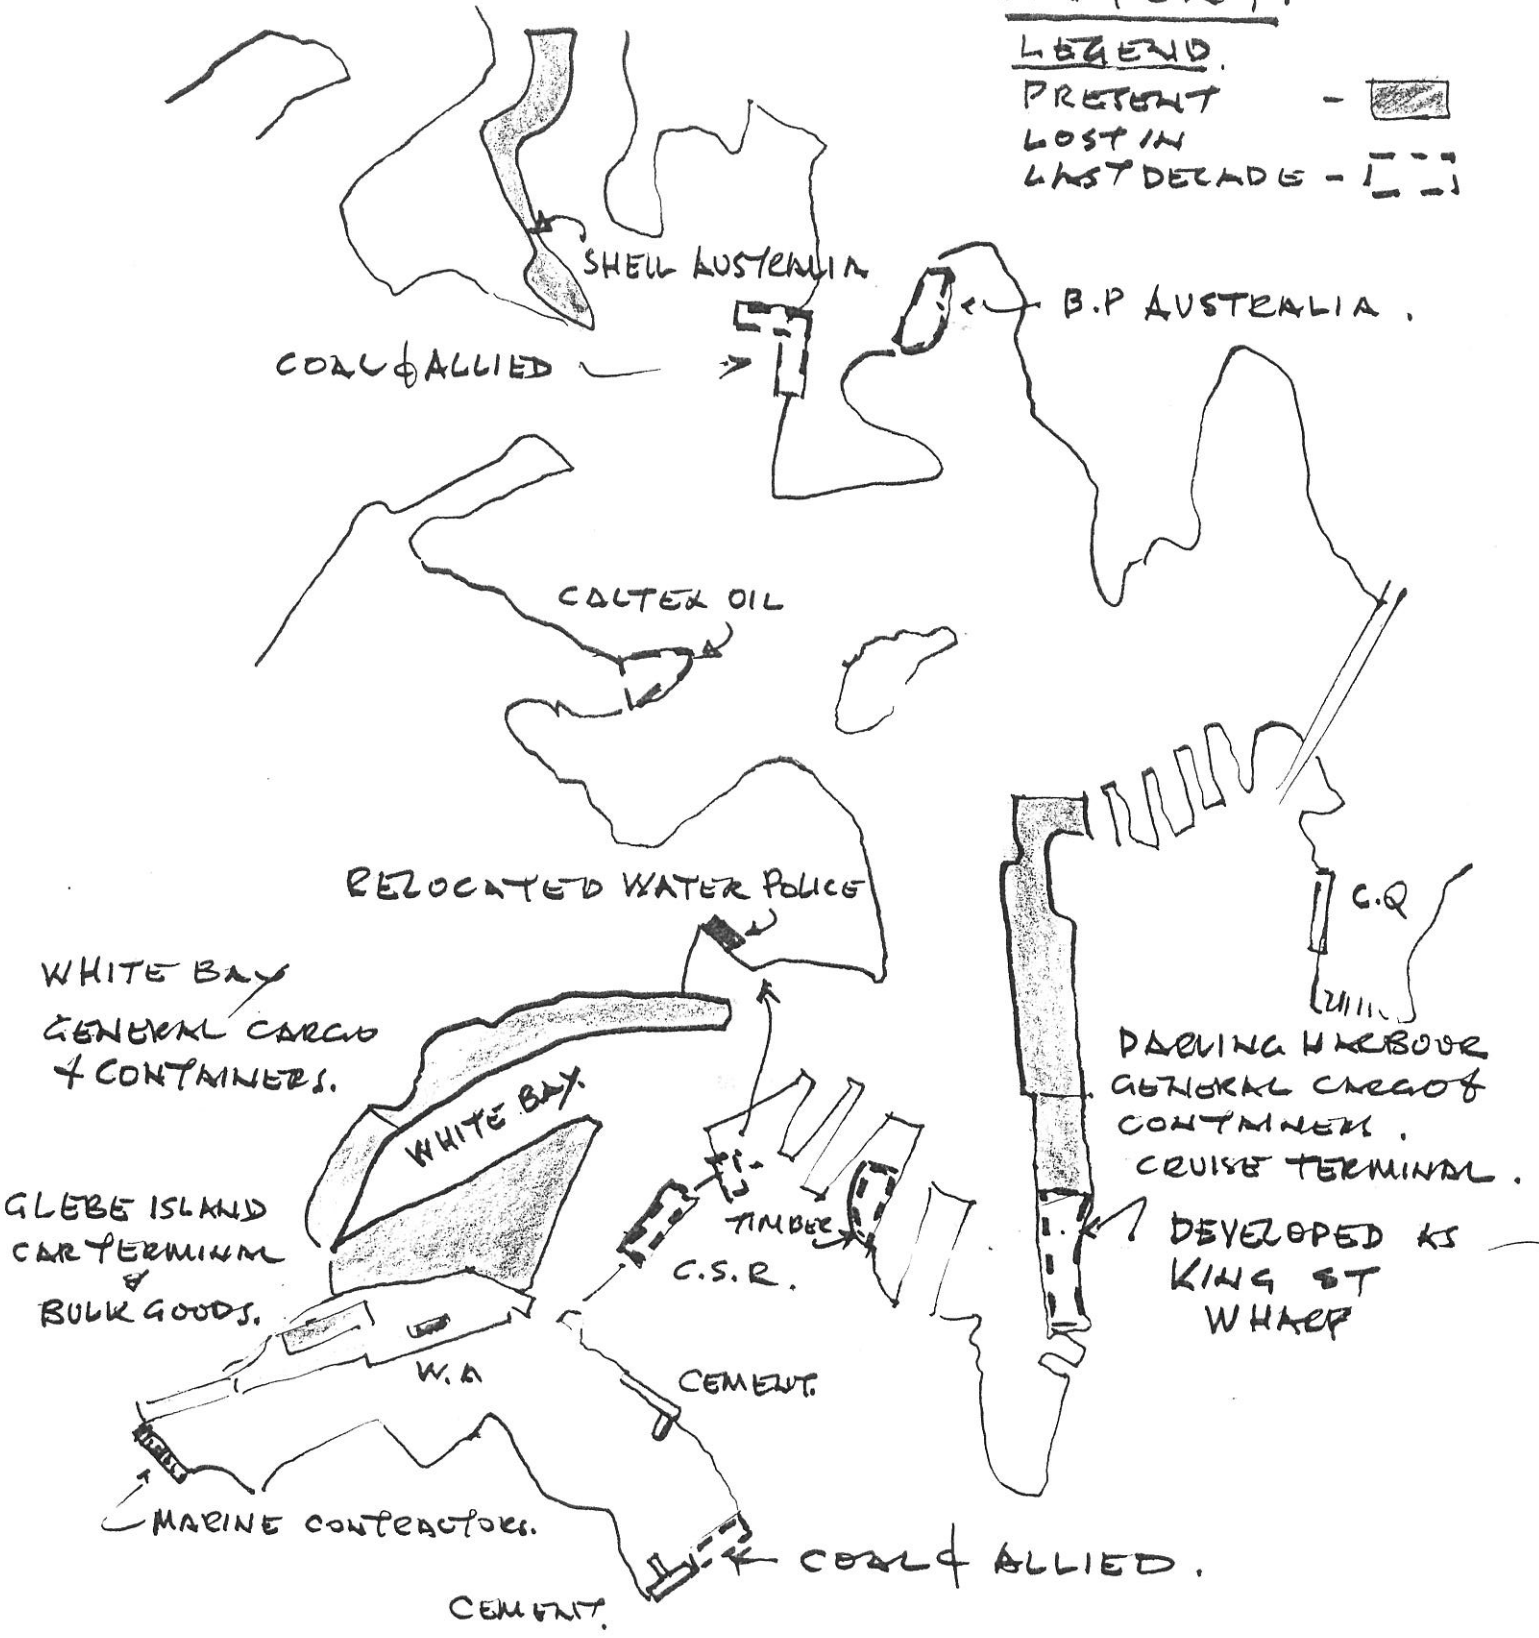 LEGEND.
PRESENT -
LOST IN
LAST DECADE -
SHELL AUSTRALIA
B.P AUSTRALIA.
COAL & ALLIED
CALTEX OIL
RELOCATED WATER POLICE
C.Q
WHITE BAY
GENERAL CARGO
& CONTAINERS.
WHITE BAY.
DARLING HARBOUR
GENERAL CARGO &
CONTAINERS.
CRUISE TERMINAL.
GLEBE ISLAND
CAR TERMINAL
&
BULK GOODS.
TIMBER
C.S.R.
DEVELOPED AS
KING ST
WHARF
W.A
CEMENT.
MARINE CONTRACTORS.
COAL & ALLIED.
CEMENT.